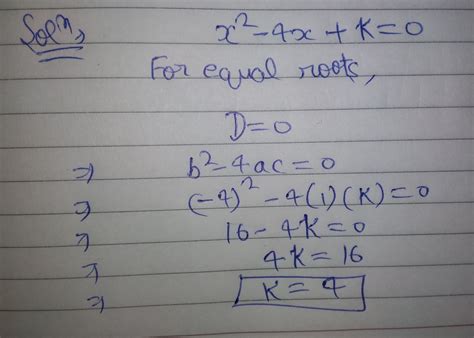 Solⁿ, x²-4x+K=0
For equal roots,
D=0
⇒ b²-4ac=0
⇒ (-4)²-4(1)(K)=0
⇒ 16-4K=0
⇒ 4K=16
⇒ K=4